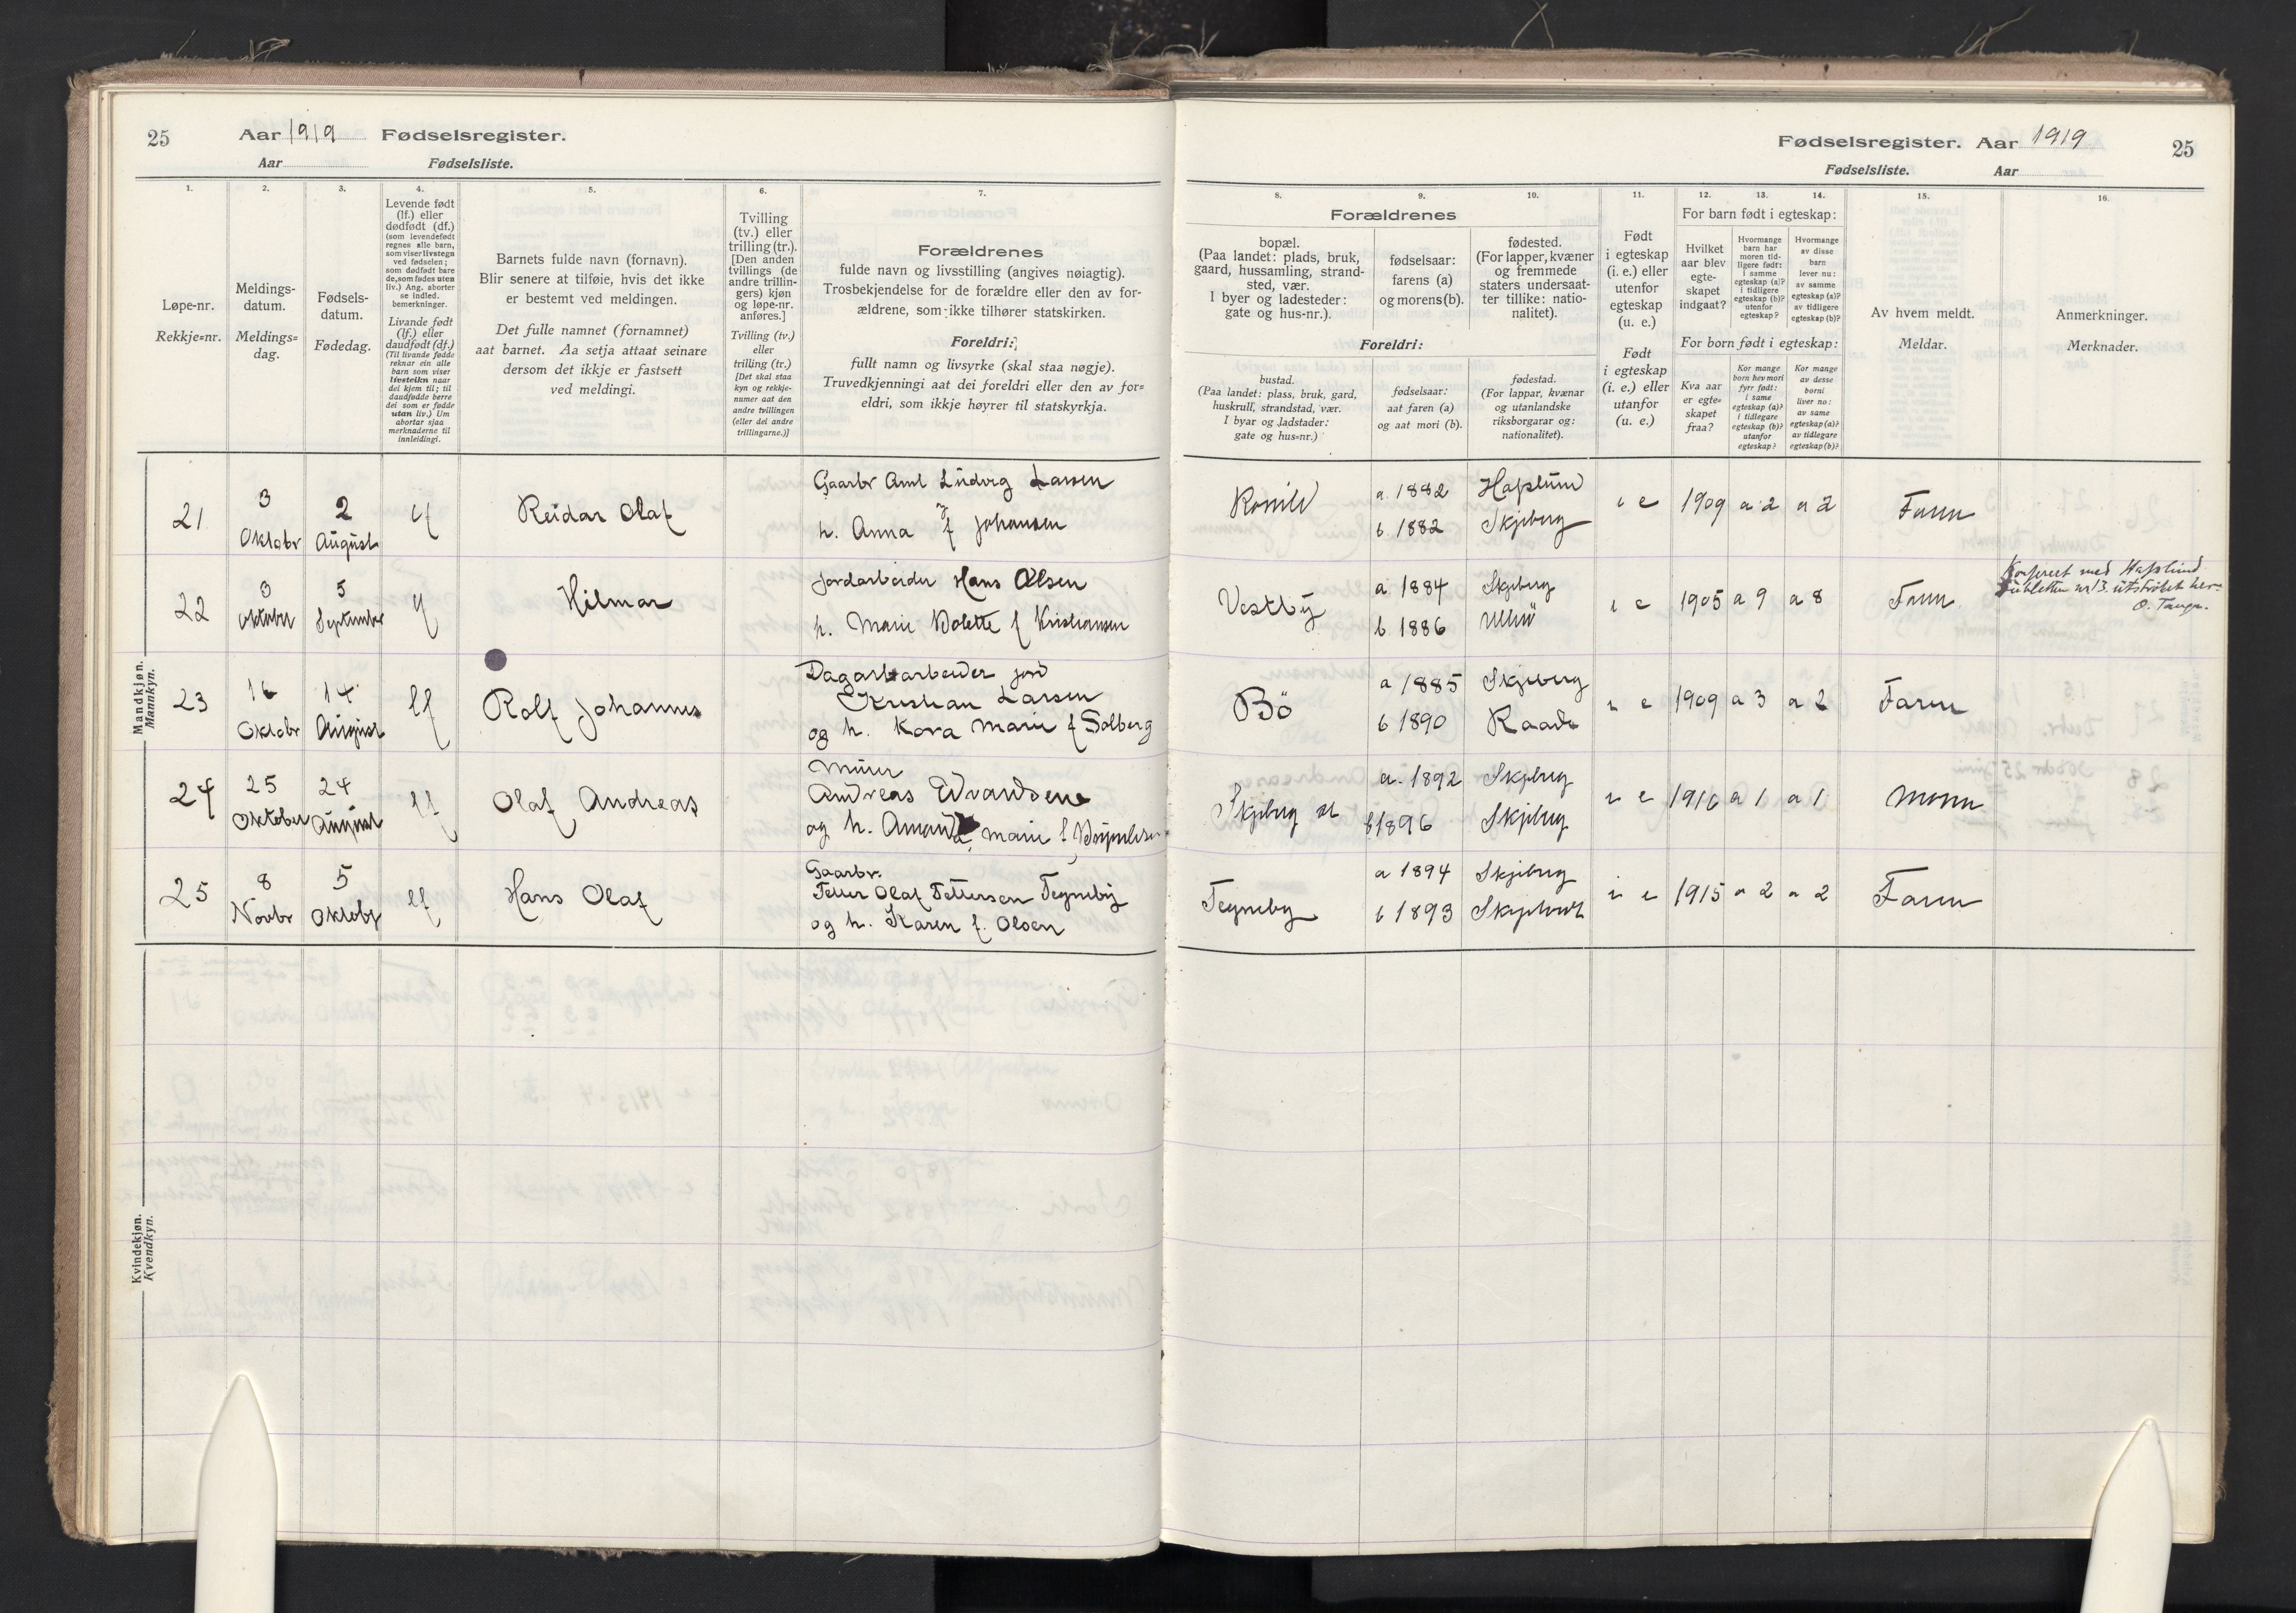 25 Aar 1919 Fødselsregister.
Aar Fødselsliste.
1. 2. 3. 4. 5. 6. 7.
Løpe-nr.
Rekkje-nr.
Meldings-
datum.
Meldings-
dag.
Fødsels-
datum.
Fødedag.
Levende født
(lf.) eller
dødfødt (df.)
(som levendefødt
regnes alle barn,
som viser livstegn
ved fødselen;
som dødfødt bare
de, som fødes uten
liv.) Ang. aborter
se indled.
bemerkninger.
Livande født
(lf.) eller
daudfødt (df.)
(Til livande fødde
reknar ein alle
barn som viser
livsteikn naar
dei kjem til; til
daudfødde berre
dei som er fødde
utan liv.) Um
abortar sjaa
merknaderne til
innleidingi.
Barnets fulde navn (fornavn).
Blir senere at tilføie, hvis det ikke
er bestemt ved meldingen.
Det fulle namnet (fornamnet)
aat barnet. Aa setja attaat seinare
dersom det ikkje er fastsett
ved meldingi.
Tvilling
(tv.) eller
trilling (tr.).
[Den anden
tvillings (de
andre trillin-
gers) kjøn
og løpe-nr.
anføres.]
Tvilling (tv.)
eller
trilling (tr.)
[Det skal staa
kyn og rekkje-
numer aat den
andre tvillingen
(eller dei andre
trillingarne.)]
Forældrenes
fulde navn og livsstilling (angives nøiagtig).
Trosbekjendelse for de forældre eller den av for-
ældrene, som ikke tilhører statskirken.
Foreldri:
fullt namn og livsyrke (skal staa nøgje).
Truvedkjenningi aat dei foreldri eller den av for-
eldri, som ikkje høyrer til statskyrkja.
Mandkjøn.
Mannkyn.
21 3 Oktobr 2 August lf Reidar Olaf
Gaarbr Axel Ludvig Larsen
h. Anna f Johansen
22 3 Oktober 5 September lf Hilmar
Jordarbeider Hans Olsen
h. Marie Bolette f Kristiansen
23 16 Oktobr 14 August lf Rolf Johannes
arbeider jord
Kristian Larsen
og h. Kora Marie f Solberg
24 25 Oktober 24 August lf Olaf Andreas
Murer
Andreas Edvardsen
og h. Marie f
25 8 Novbr 5 Oktobr lf Hans Olaf
Gaarbr.
Petter Olaf Pettersen Tegneby
og h. Karen f. Olsen
Kvindekjøn.
Kvendkyn.
Fødselsregister. Aar 1919 25
Fødselsliste. Aar
8. 9. 10. 11. 12. 13. 14. 15. 16.
Forældrenes
bopæl.
(Paa landet: plads, bruk,
gaard, hussamling, strand-
sted, vær.
I byer og ladesteder:
gate og hus-nr.).
fødselsaar:
farens (a)
og morens (b).
fødested.
(For lapper, kvæner
og fremmede
staters undersaat-
ter tillike: natio-
nalitet).
Foreldri:
bustad.
(Paa landet: plass, bruk, gard,
huskrull, strandstad, vær.
I byar og ladstader:
gate og hus-nr.)
fødselsaar:
aat faren (a)
og aat mori (b).
fødestad.
(For lappar, kvænar
og utanlandske
riksborgarar og:
nationalitet).
Født
i egteskap
(i. e.) eller
utenfor
egteskap
(u. e.)
Født
i egteskap
(i. e.) eller
utanfor
(u. e.)
For barn født i egteskap:
Hvilket
aar blev
egte-
skapet
indgaat?
Hvormange
barn har
moren tid-
ligere født:
i samme
egteskap (a)?
i tidligere
egteskap (b)?
utenfor
egteskap?
Hvormange
av disse
barn
lever nu:
av samme
egteskap (a)?
av tidligere
egteskap (b)?
For born født i egteskap:
Kva aar
er egte-
skapet
fraa?
Kor mange
born hev mori
fyrr født:
i same
egteskap (a)?
i tidlegare
egteskap (b)?
utanfor
egteskap?
Kor mange
av desse
borni
liver no:
av same
egteskap (a)?
av tidlegare
egteskap (b)?
Av hvem meldt.
Meldar.
Anmerkninger.
Merknader.
a. 1882 Hafslund i e 1909 a 2 a 2 Faren
b. 1882 Skjeberg
Vestby a 1884 Skjeberg i e 1905 a 9 a 8 Faren
b. 1886
Konferert med Hafslund
nr 13. utstrøket her.
O. Tangen.
Bö a 1885 Skjeberg i e 1909 a 3 a 2 Faren
b 1890 Raade
Skjeberg a. 1892 Skjeberg i e 1916 a 1 a 1 Moren
b 1896 Skjeberg
Tegneby a 1894 Skjeberg i e 1915 a 2 a 2 Faren
b 1893